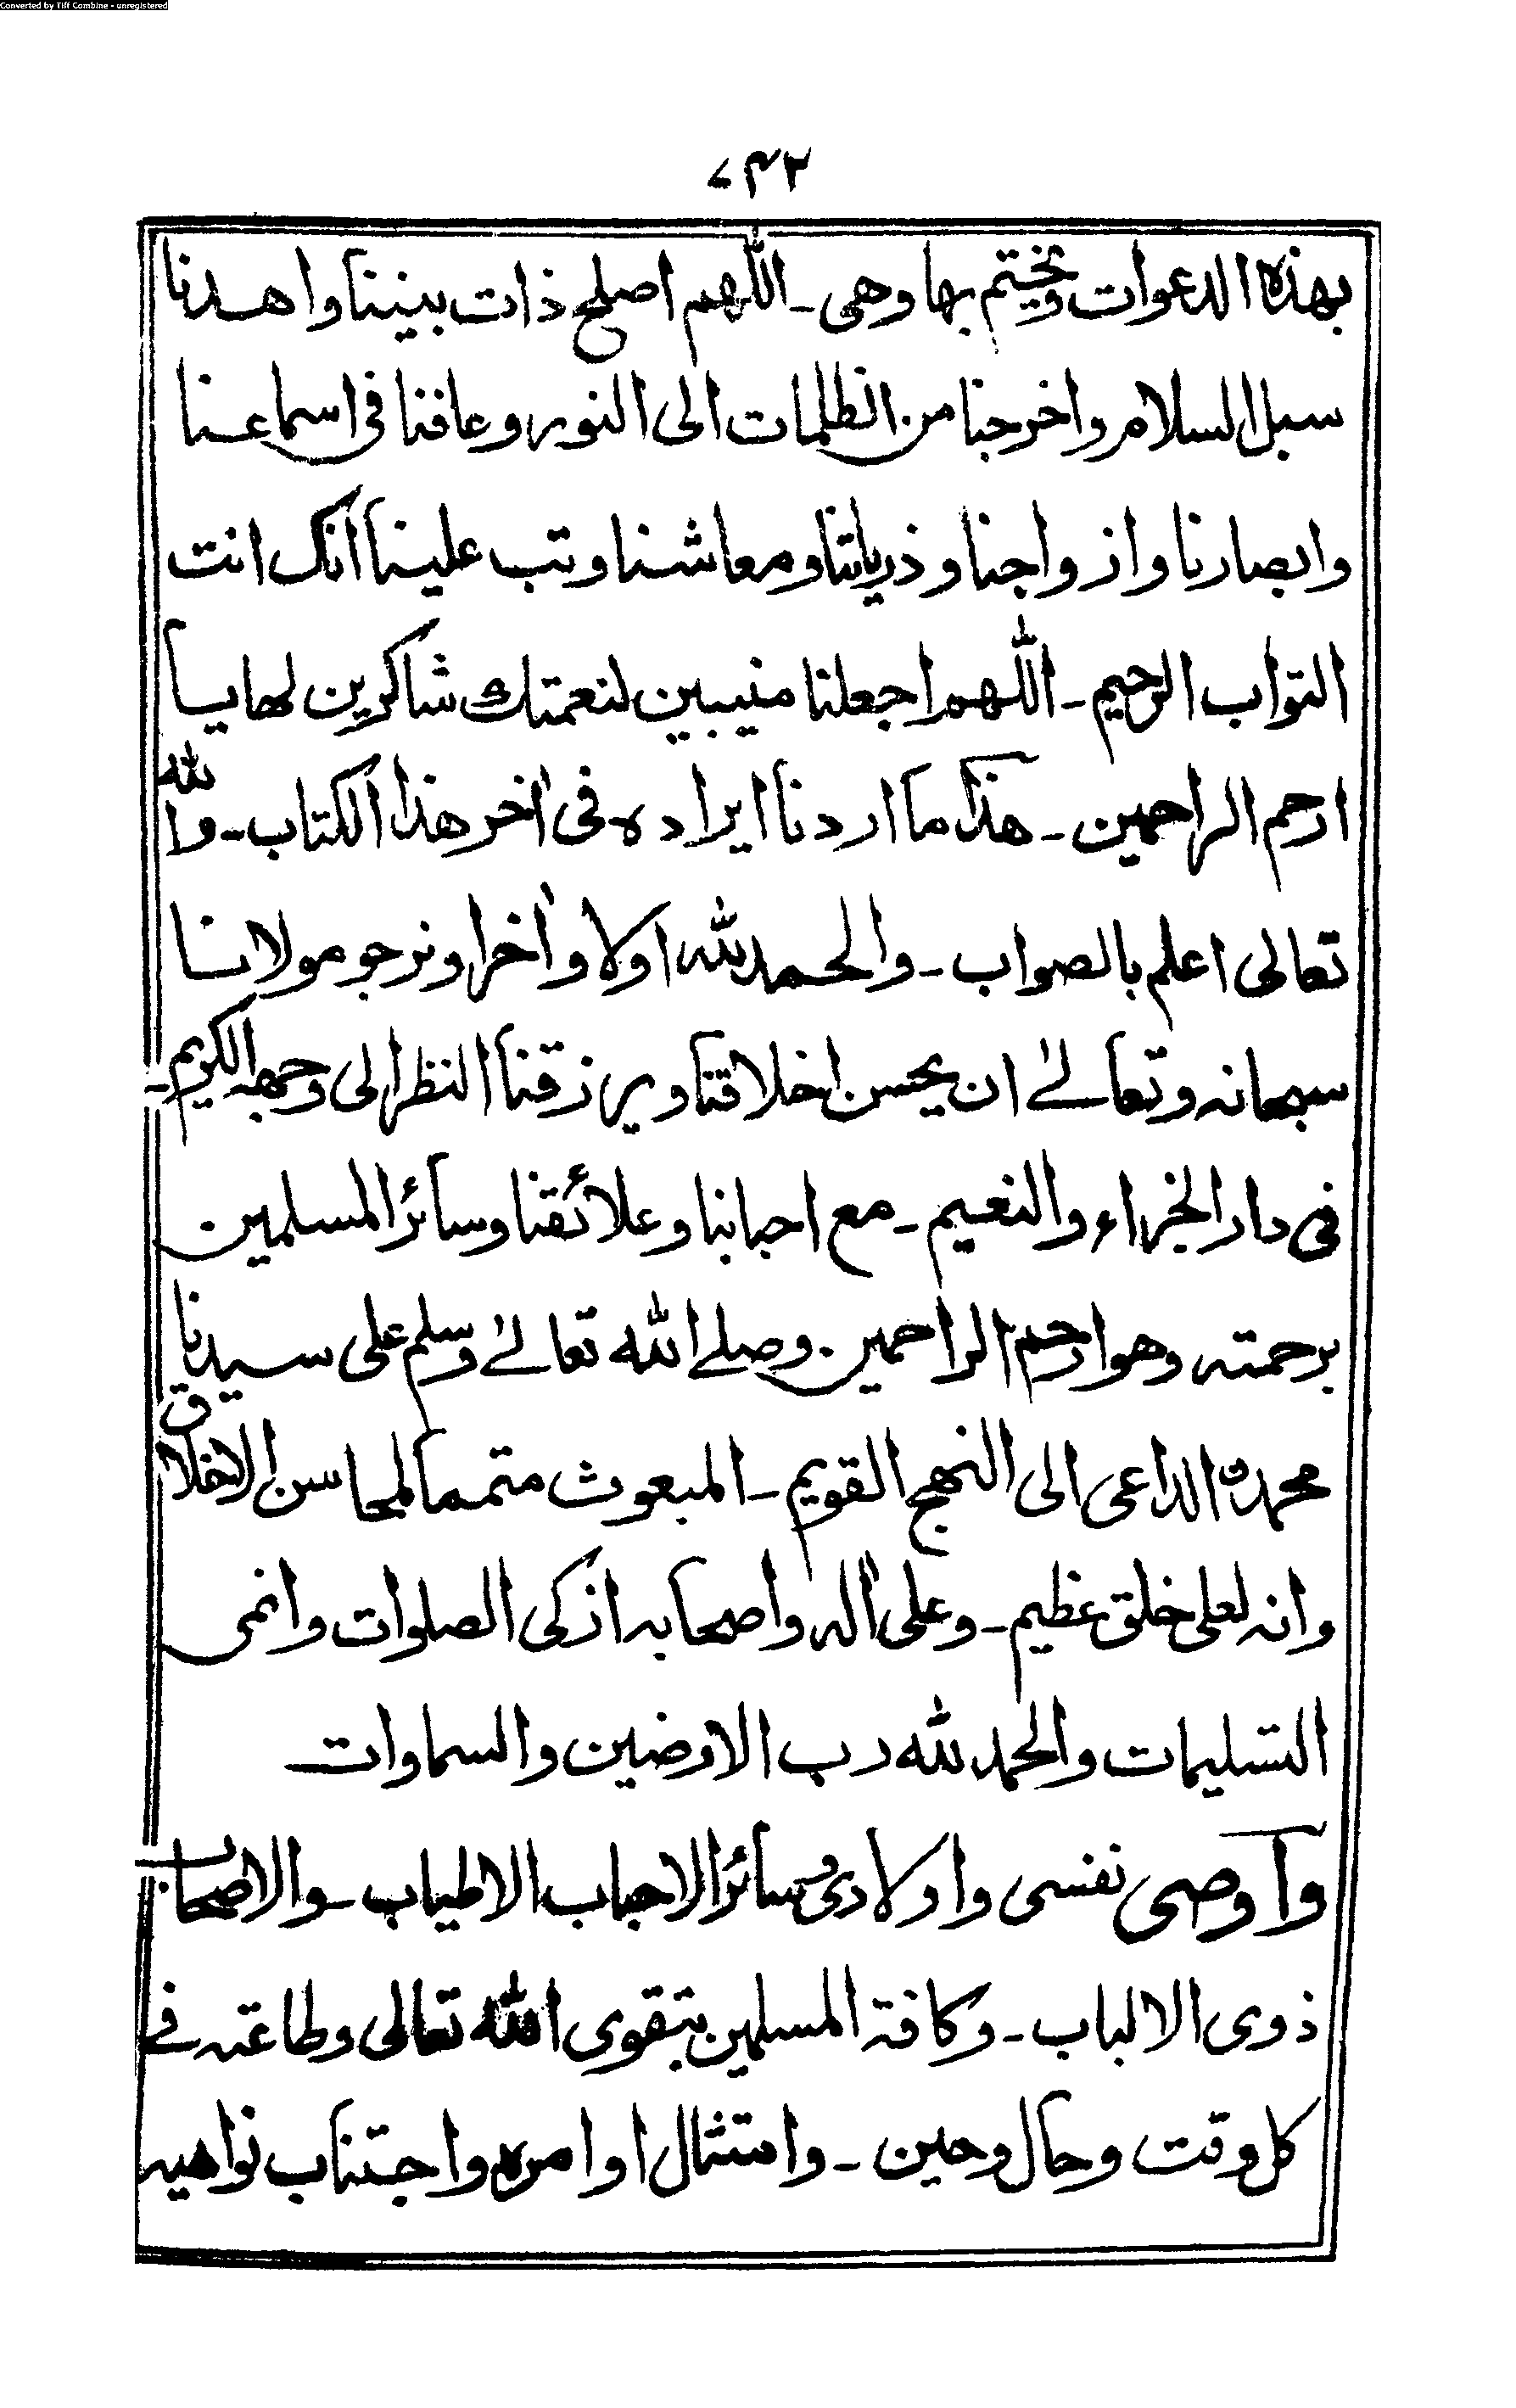 Converted by Tiff Combine - unregistered
۷۴۲
بهذه الدعوات ويختم بها وهى ـ اللهم اصلح ذات بيننا واهدنا
سبل السلام واخرجنا من الظلمات الى النور وعافنا فى اسماعنا
وابصارنا وازواجنا وذرياتنا ومعاشنا وتب علينا انك انت
التواب الرحيم ـ اللهم اجعلنا منيبين لنعمتك شاكرين لها يا
ارحم الراحمين ـ هذا ما اردنا ايراده فى اٰخر هذا الكتاب ـ والله
تعالى اعلم بالصواب ـ والحمد لله اولا واٰخرا ونرجو مولانا
سبحانه وتعالےٰ ان يحسن اخلاقنا ويرزقنا النظر الى وجهه الكريم ـ
فى دار الجزاء والنعيم ـ مع احبابنا وعلائقنا وسائر المسلمين
برحمته وهو ارحم الراحمين . وصلے الله تعالےٰ وسلم على سيدنا
محمد ن الداعى الى النهج القويم ـ المبعوث متمما لمحاسن الاخلاق
وانه لعلى خلق عظيم ـ وعلى اٰله واصحابه ازكى الصلوات وانمى
التسليمات والحمد لله رب الارضين والسماوات
وأوصى نفسى واولادى وسائر الاحباب الاطياب ـ والاصحاب
ذوى الالباب ـ وكافة المسلمين بتقوى الله تعالى وطاعته فے
كل وقت وحال وحين ـ وامتثال اوامره واجتناب نواهيه